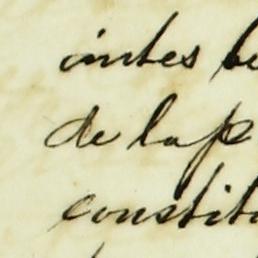 intes be
de la p
constitu